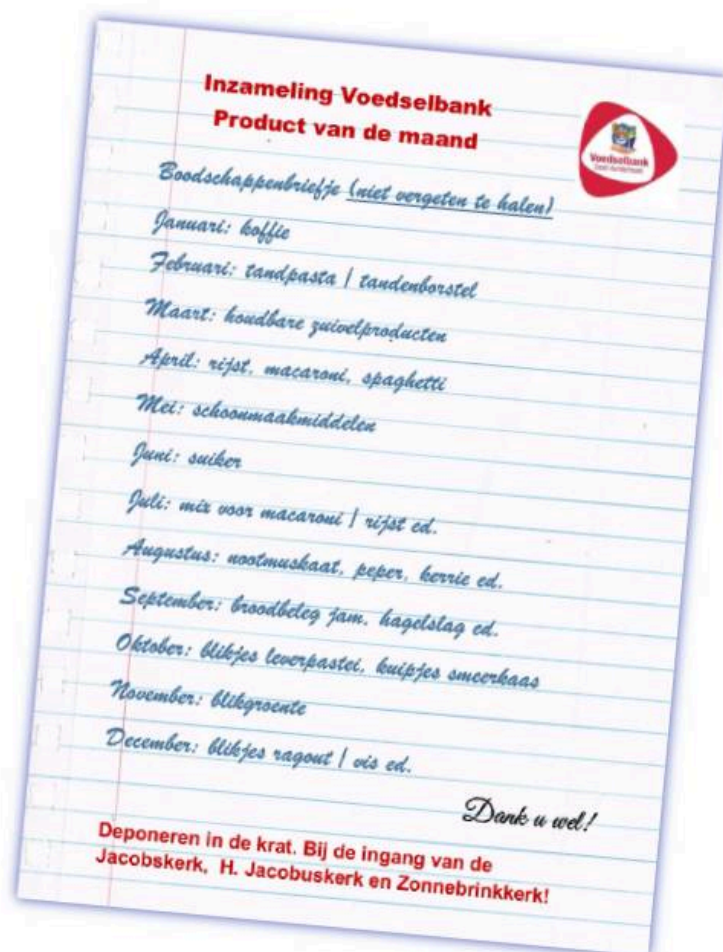 Inzameling Voedselbank
Product van de maand
Voedselbank
Boodschappenbriefje (niet vergeten te halen)
Januari: koffie
Februari: tandpasta | tandenborstel
Maart: houdbare zuivelproducten
April: rijst, macaroni, spaghetti
Mei: schoonmaakmiddelen
Juni: suiker
Juli: mix voor macaroni | rijst ed.
Augustus: nootmuskaat, peper, kerrie ed.
September: broodbeleg jam, hagelslag ed.
Oktober: blikjes leverpastei, kuipjes smeerkaas
November: blikgroente
December: blikjes ragout | vis ed.
Dank u wel!
Deponeren in de krat. Bij de ingang van de
Jacobskerk, H. Jacobuskerk en Zonnebrinkkerk!